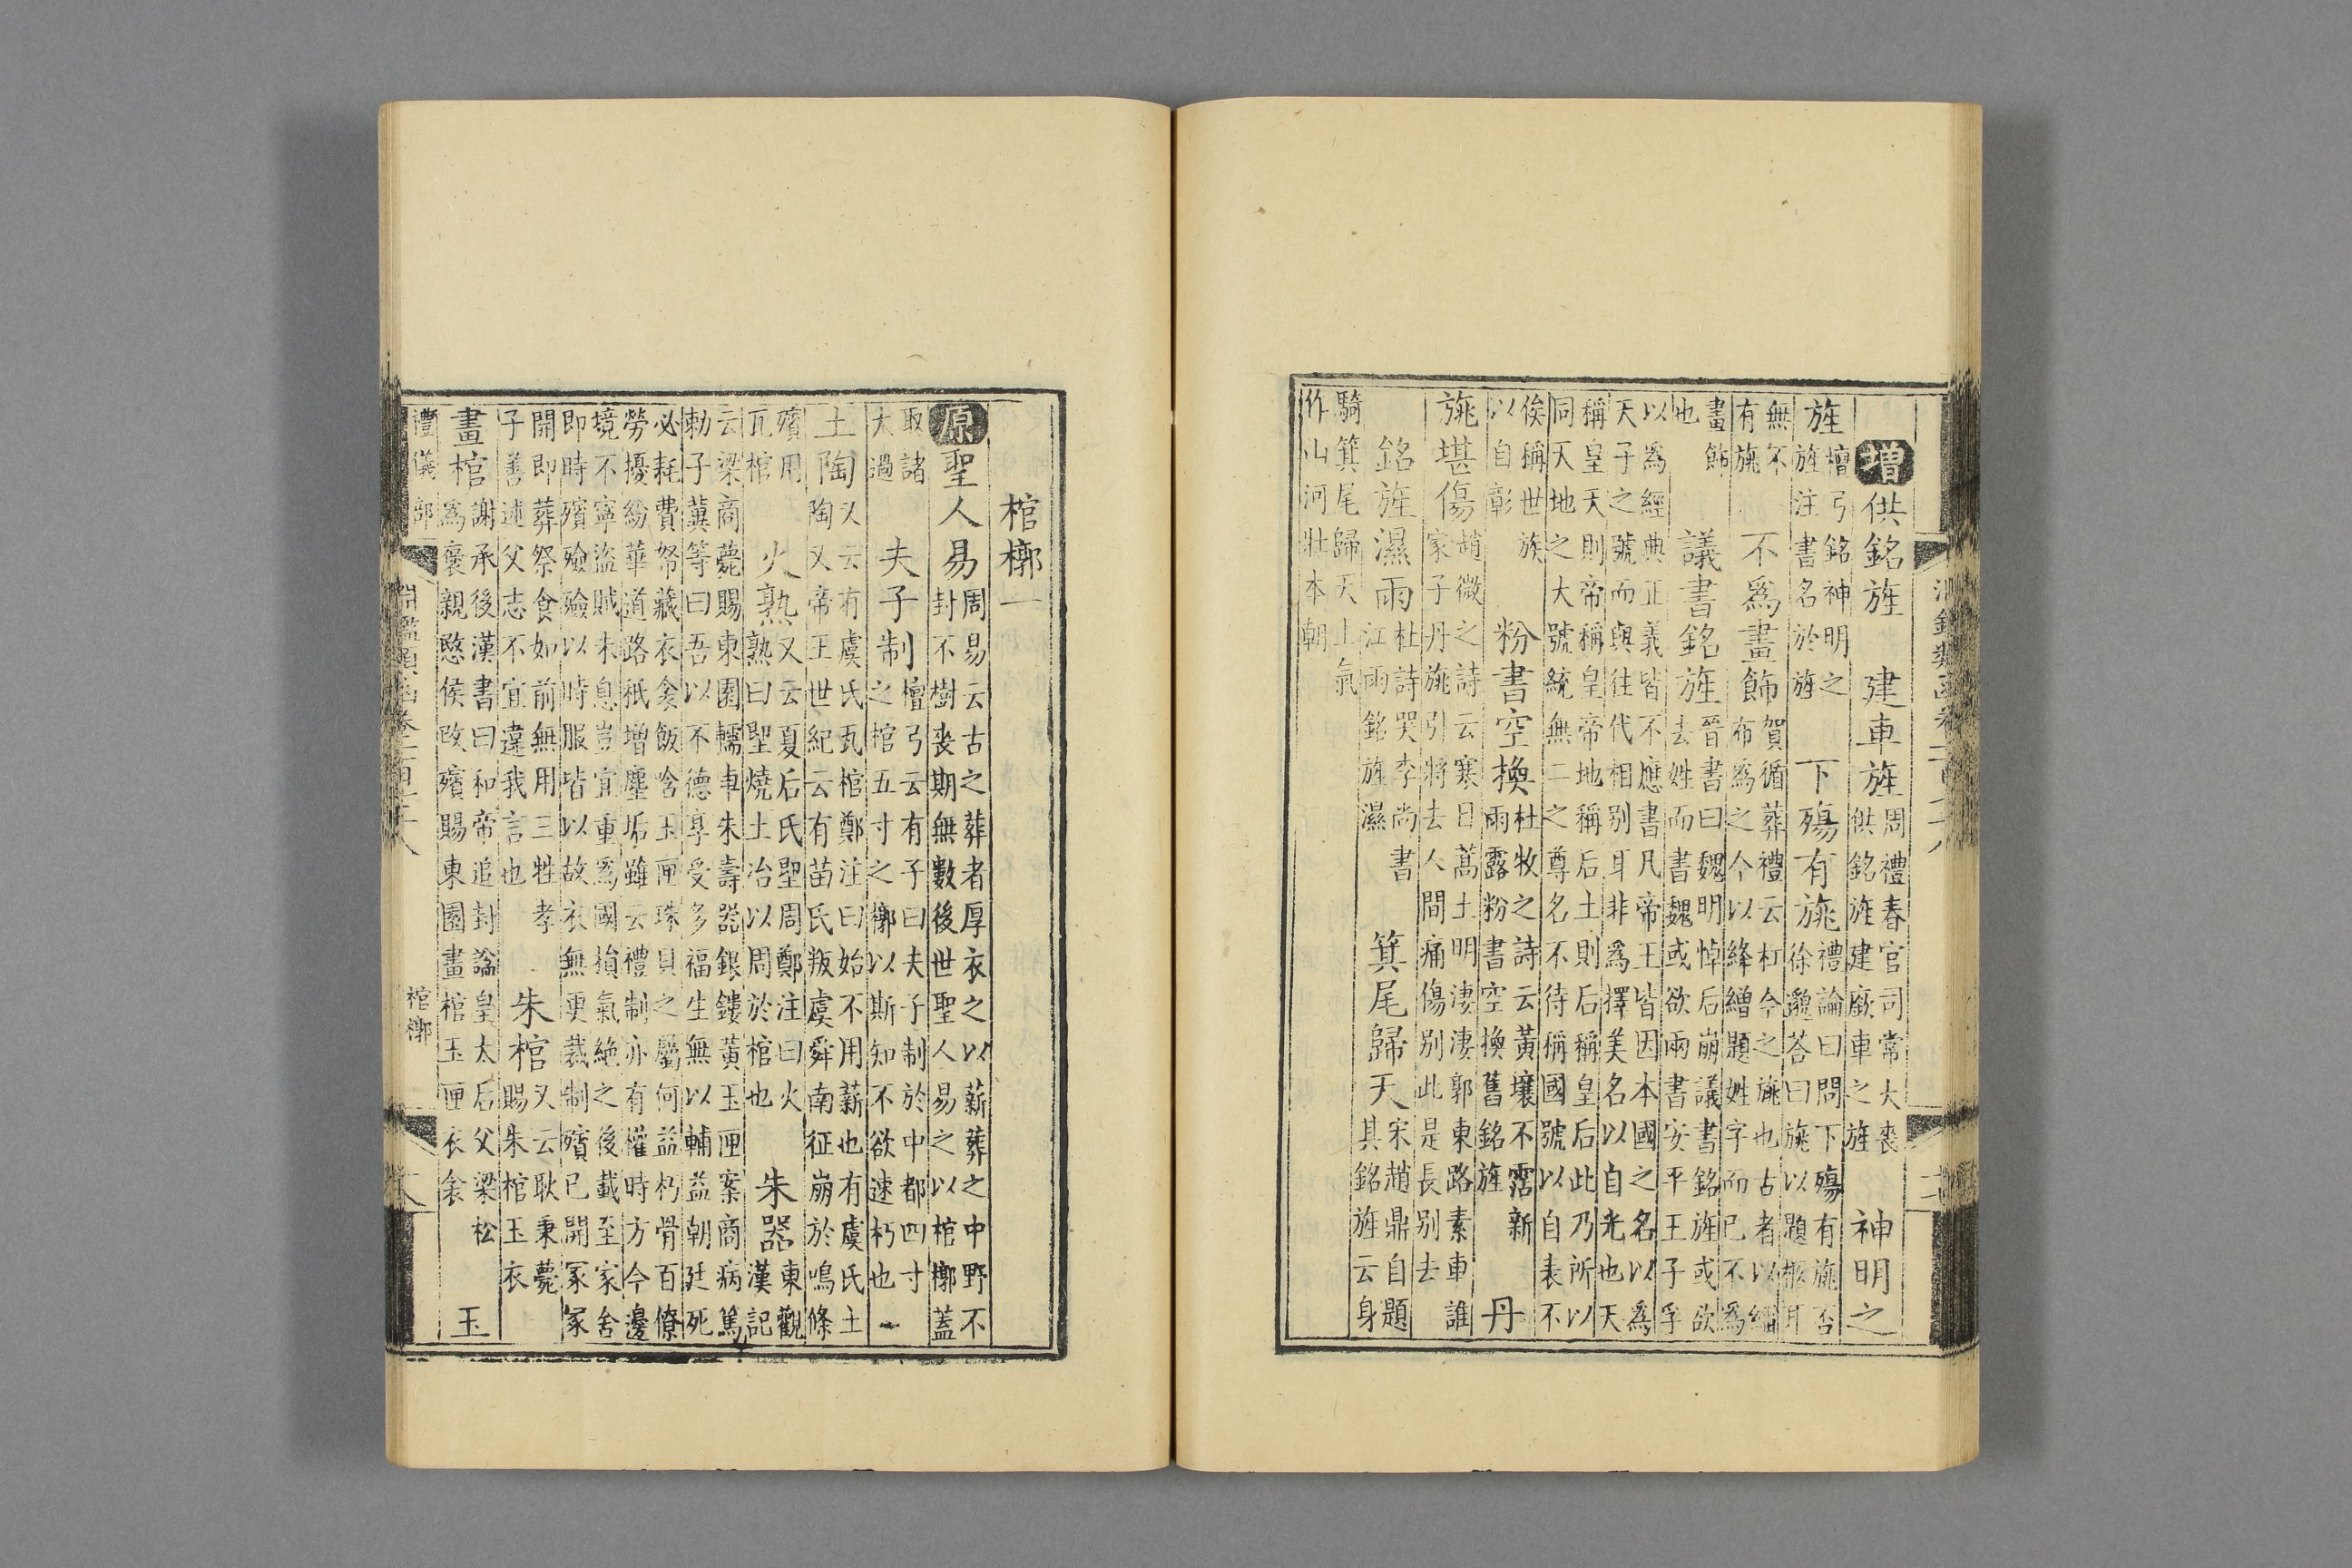 淵鑑類函卷一百
增供銘旌 建車旌周禮春官司常大喪供銘旌建廞車之旌 神明之
旌檀弓銘神明之旌注書名於旌 下殤有旐禮論曰問下殤有旐否徐邈答曰旐以題柩耳
無不有旐 不爲畫飾賀循葬禮云杠今之旐也古者以緇布爲之今以絳繒題姓字而已不爲
畫飾也 議書銘旌晉書曰魏明悼后崩議書銘旌或欲去姓而書魏或欲兩書安平王子孚
以爲經典正義皆不應書凡帝王皆因本國之名以爲天子之號而與往代相別耳非爲擇美名以自光也天
稱皇天則帝稱皇帝地稱后土則后稱皇后此乃所以同天地之大號統無二之尊名不待稱國號以自表不
俟稱世族以自彰 粉書空換杜牧之詩云黃壤不霑新雨露粉書空換舊銘旌 丹
旐堪傷趙微之詩云寒日蒿土明淒淒郭東路素車誰家子丹旐引將去人間痛傷別此是長別去
銘旌濕雨杜詩哭李尚書江雨銘旌濕 箕尾歸天宋趙鼎自題其銘旌云身
騎箕尾歸天上氣作山河壯本朝
棺槨一
原聖人易周易云古之葬者厚衣之以薪葬之中野不封不樹喪期無數後世聖人易之以棺槨蓋
取諸大過 夫子制檀弓云有子曰夫子制於中都四寸之棺五寸之槨以斯知不欲速朽也一
土陶又云有虞氏瓦棺鄭注曰始不用薪也有虞氏土陶又帝王世紀云有苗氏叛虞舜南征崩於鳴條
殯用瓦棺 火熟又云夏后氏堲周鄭注曰火熟曰堲燒土冶以周於棺也 朱器東觀漢記
云梁商薨賜東園轜車朱壽器銀鏤黃玉匣案商病篤勅子冀等曰吾以不德享受多福生無以輔益朝廷死
必耗費帑藏衣衾飯唅玉匣珠貝之屬何益朽骨百僚勞擾紛華道路祇增塵垢雖云禮制亦有權時方今邊
境不寧盜賊未息豈宜重爲國損氣絶之後載至冢舍即時殯殮殮以時服皆以故衣無更裁制殯已開冢冢
開即葬祭食如前無用三牲孝子善述父志不宜違我言也 朱棺又云耿秉薨賜朱棺玉衣 玉
畫棺謝承後漢書曰和帝追封謚皇太后父梁松爲褒親愍侯改殯賜東園畫棺玉匣衣衾
禮儀部 淵鑑類函卷一百 棺槨